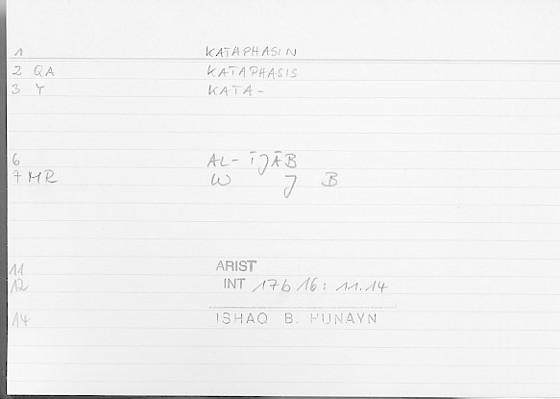 1 KATAPHASIN
2 QA KATAPHASIS
3 Y KATA-
6 AL-ĪJĀB
7 MR W J B
11 ARIST
12 INT 17b 16: 11.14
14 ISHAQ B. HUNAYN